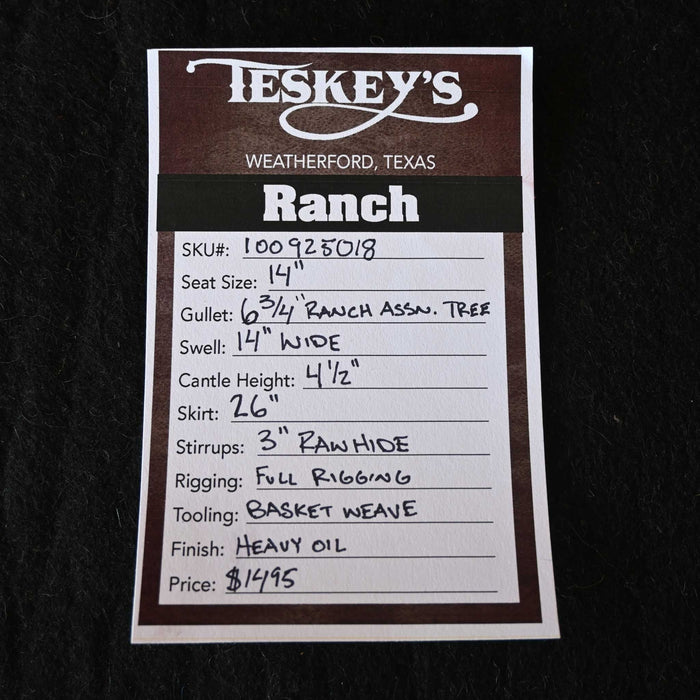 TESKEY'S
WEATHERFORD, TEXAS
Ranch
SKU#: 100925018
Seat Size: 14"
Gullet: 6 3/4" RANCH ASSN. TREE
Swell: 14" WIDE
Cantle Height: 4 1/2"
Skirt: 26"
Stirrups: 3" RAWHIDE
Rigging: FULL RIGGING
Tooling: BASKET WEAVE
Finish: HEAVY OIL
Price: $1495